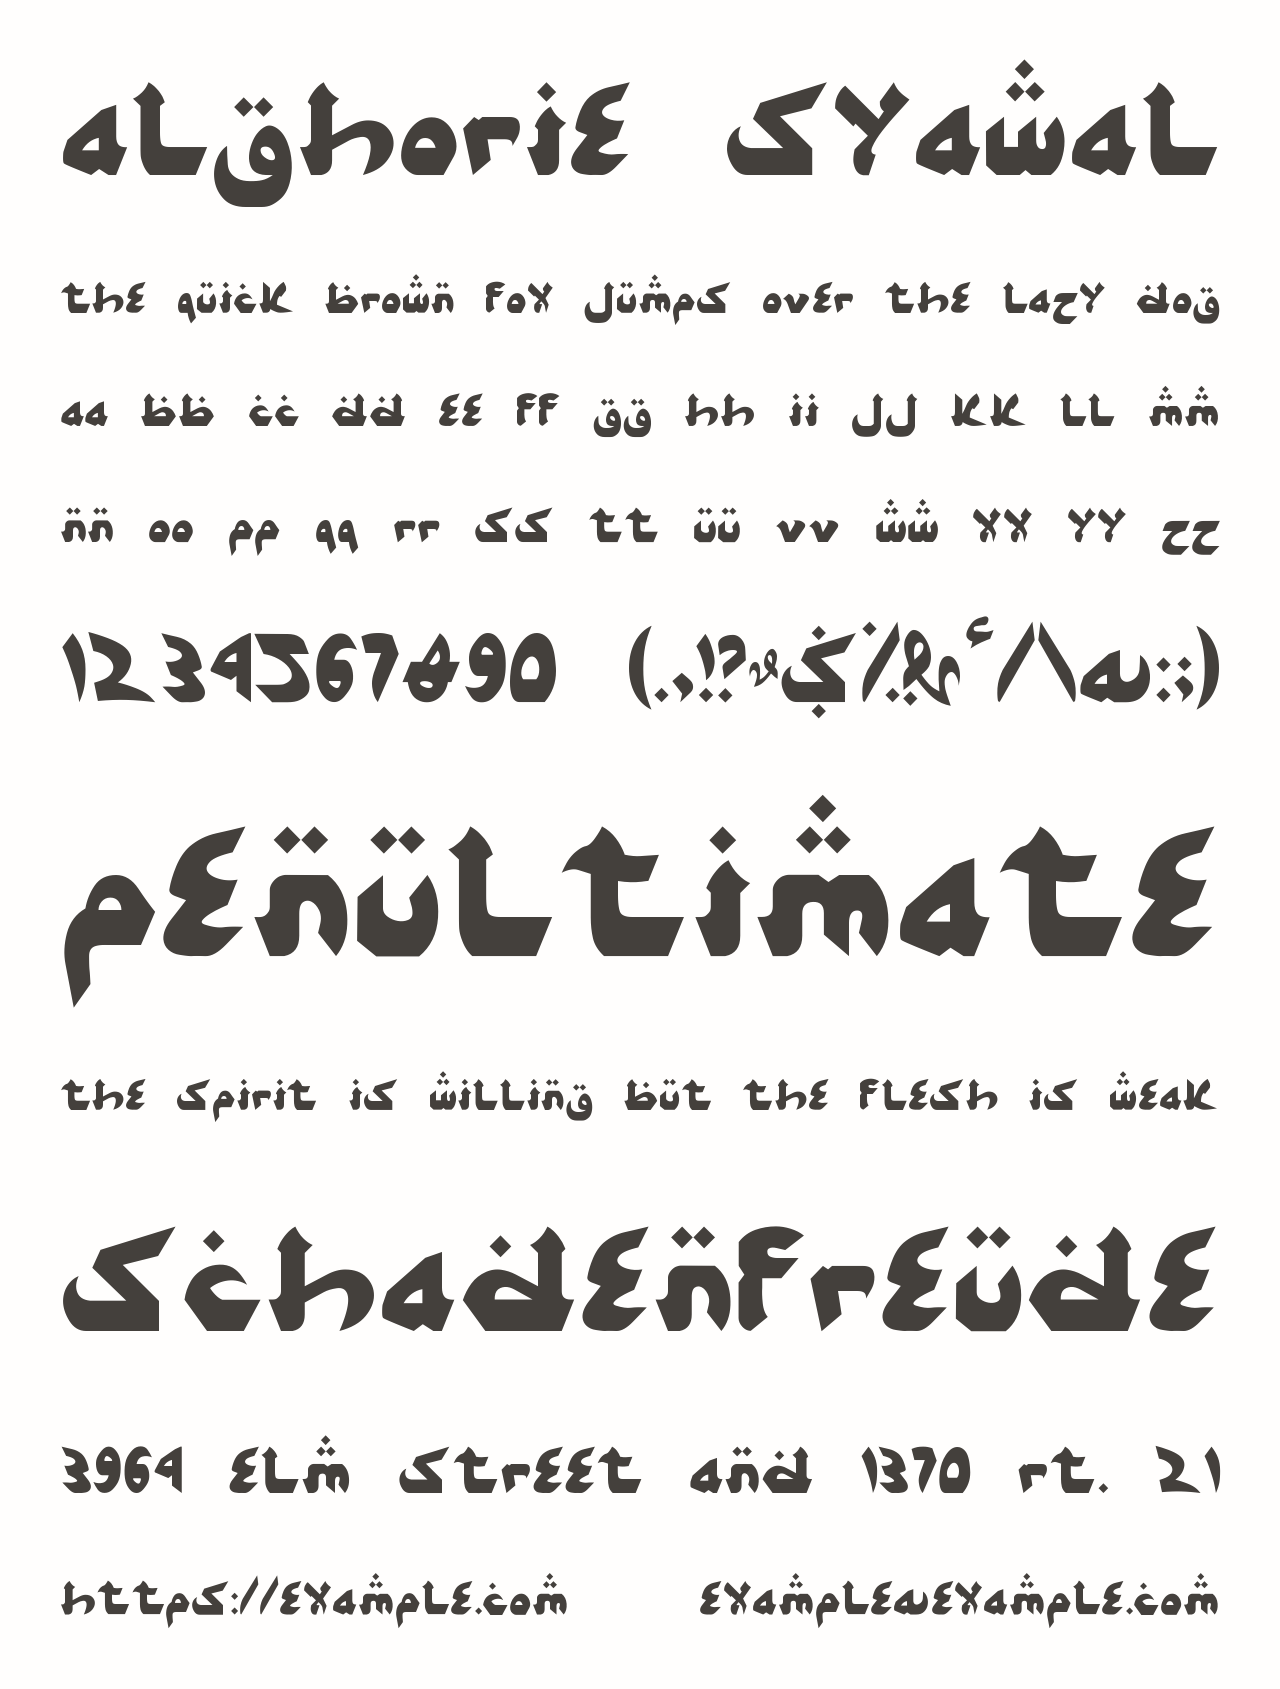 alghorie syawal
the quick brown fox jumps over the lazy dog
aa bb cc dd ee ff gg hh ii jj kk ll mm
nn oo pp qq rr ss tt uu vv ww xx yy zz
1234567890 (.,!?#$%&'/\@:;)
penultimate
the spirit is willing but the flesh is weak
schadenfreude
3964 elm street and 1370 rt. 21
https://example.com example@example.com